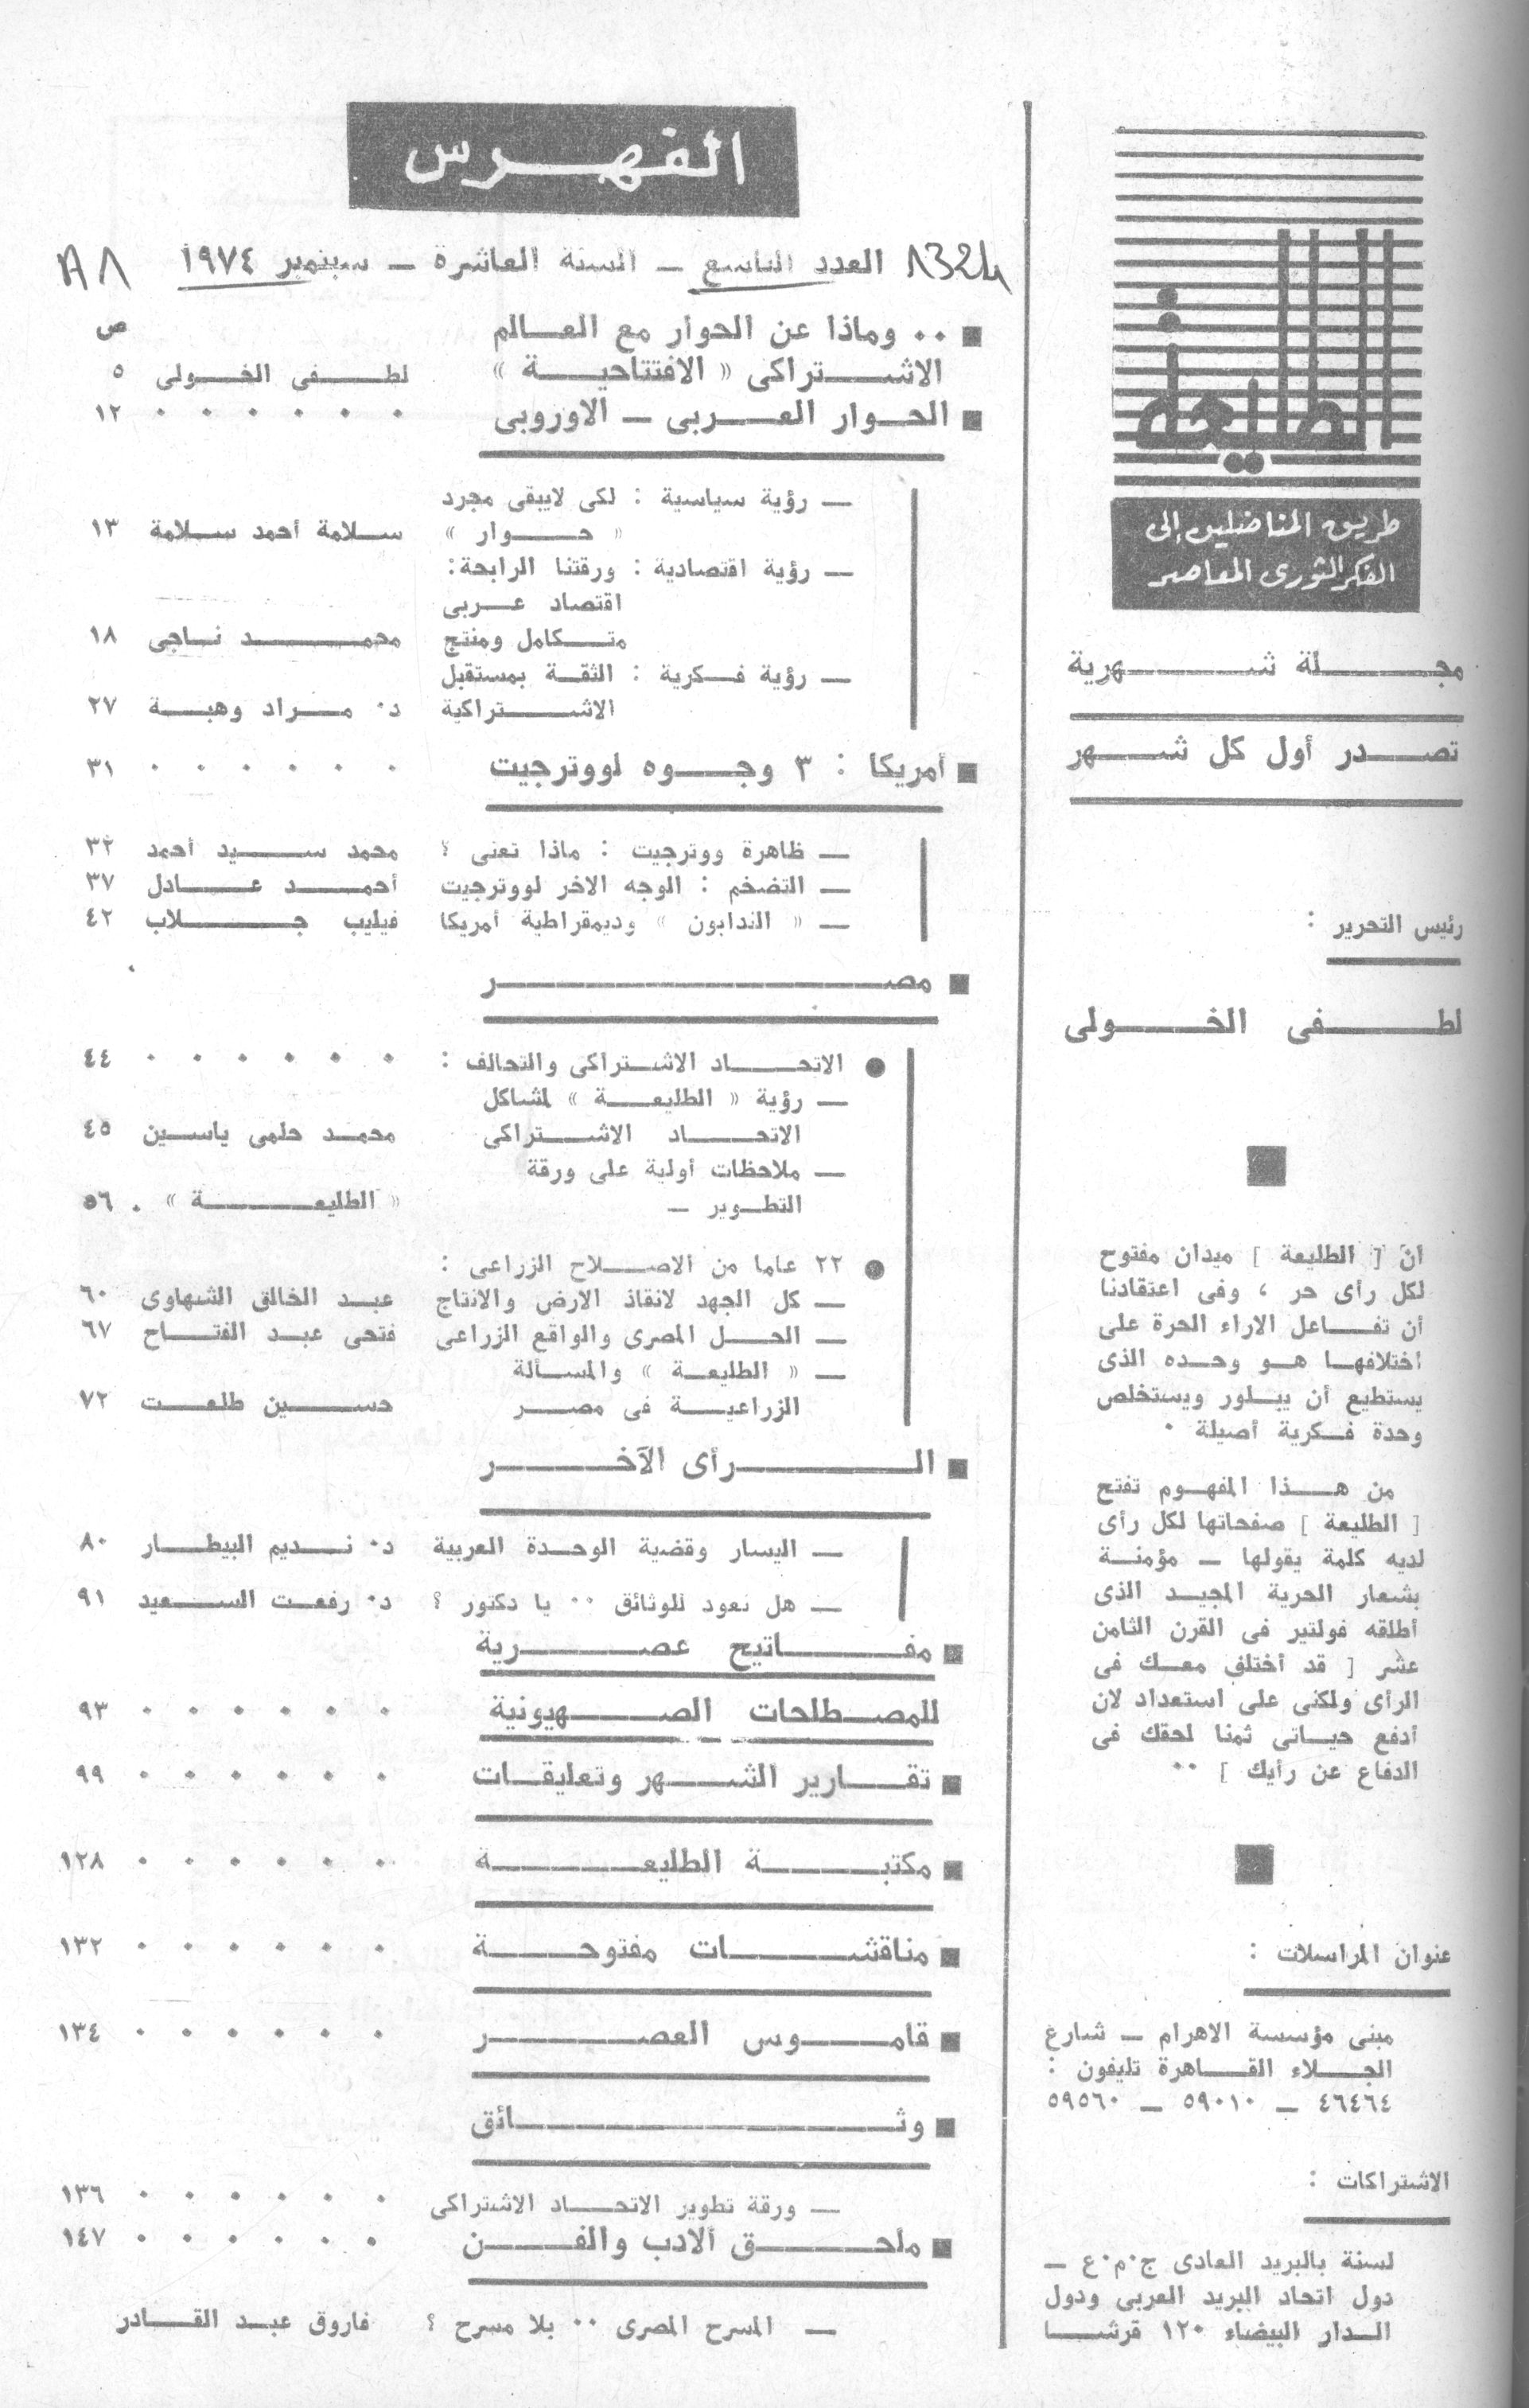 الطليعة
طريق المناضلين إلى
الفكر الثورى المعاصر
مجلة شهرية
تصدر أول كل شهر
رئيس التحرير :
لطفى الخولى
ان [ الطليعة ] ميدان مفتوح
لكل رأى حر ، وفى اعتقادنا
أن تفاعل الاراء الحرة على
اختلافها هو وحده الذى
يستطيع أن يبلور ويستخلص
وحدة فكرية أصيلة ٠
من هذا المفهوم تفتح
[ الطليعة ] صفحاتها لكل رأى
لديه كلمة يقولها — مؤمنة
بشعار الحرية المجيد الذى
أطلقه فولتير فى القرن الثامن
عشر [ قد أختلف معك فى
الرأى ولكنى على استعداد لان
أدفع حياتى ثمنا لحقك فى
الدفاع عن رأيك ] ٠٠
عنوان المراسلات :
مبنى مؤسسة الاهرام — شارع
الجلاء القاهرة تليفون :
٤٦٤٦٤ — ٥٩٠١٠ — ٥٩٥٦٠
الاشتراكات :
لسنة بالبريد العادى ج٠م٠ع —
دول اتحاد البريد العربى ودول
الدار البيضاء ١٢٠ قرشا
الفهرس
العدد التاسع — السنة العاشرة — سبتمبر ١٩٧٤
٠٠ وماذا عن الحوار مع العالم ص
الاشتراكى « الافتتاحية » لطفى الخولى ٥
الحوار العربى — الاوروبى ٠ ٠ ٠ ٠ ٠ ٠ ١٢
— رؤية سياسية : لكى لايبقى مجرد
« حوار » سلامة أحمد سلامة ١٣
— رؤية اقتصادية : ورقتنا الرابحة :
اقتصاد عربى
متكامل ومنتج محمد ناجى ١٨
— رؤية فكرية : الثقة بمستقبل
الاشتراكية د٠ مراد وهبة ٢٧
أمريكا : ٣ وجوه لووترجيت ٠ ٠ ٠ ٠ ٠ ٠ ٣١
— ظاهرة ووترجيت : ماذا تعنى ؟ محمد سيد أحمد ٣٢
— التضخم : الوجه الاخر لووترجيت أحمد عادل ٣٧
— « الندابون » وديمقراطية أمريكا فيليب جلاب ٤٢
مصر
الاتحاد الاشتراكى والتحالف : ٠ ٠ ٠ ٠ ٠ ٠ ٤٤
— رؤية « الطليعة » لمشاكل
الاتحاد الاشتراكى محمد حلمى ياسين ٤٥
— ملاحظات أولية على ورقة
التطوير — « الطليعة » ٠ ٥٦
٢٢ عاما من الاصلاح الزراعى :
— كل الجهد لانقاذ الارض والانتاج عبد الخالق الشهاوى ٦٠
— الحل المصرى والواقع الزراعى فتحى عبد الفتاح ٦٧
— « الطليعة » والمسألة
الزراعية فى مصر حسين طلعت ٧٢
الرأى الآخر
— اليسار وقضية الوحدة العربية د٠ نديم البيطار ٨٠
— هل نعود للوثائق ٠٠ يا دكتور ؟ د٠ رفعت السعيد ٩١
مفاتيح عصرية
للمصطلحات الصهيونية ٠ ٠ ٠ ٠ ٠ ٠ ٩٣
تقارير الشهر وتعليقات ٠ ٠ ٠ ٠ ٠ ٠ ٩٩
مكتبة الطليعة ٠ ٠ ٠ ٠ ٠ ٠ ١٢٨
مناقشات مفتوحة ٠ ٠ ٠ ٠ ٠ ٠ ١٣٢
قاموس العصر ٠ ٠ ٠ ٠ ٠ ٠ ١٣٤
وثائق
— ورقة تطوير الاتحاد الاشتراكى ٠ ٠ ٠ ٠ ٠ ٠ ١٣٦
ملحق الادب والفن ٠ ٠ ٠ ٠ ٠ ٠ ١٤٧
— المسرح المصرى ٠٠ بلا مسرح ؟ فاروق عبد القادر